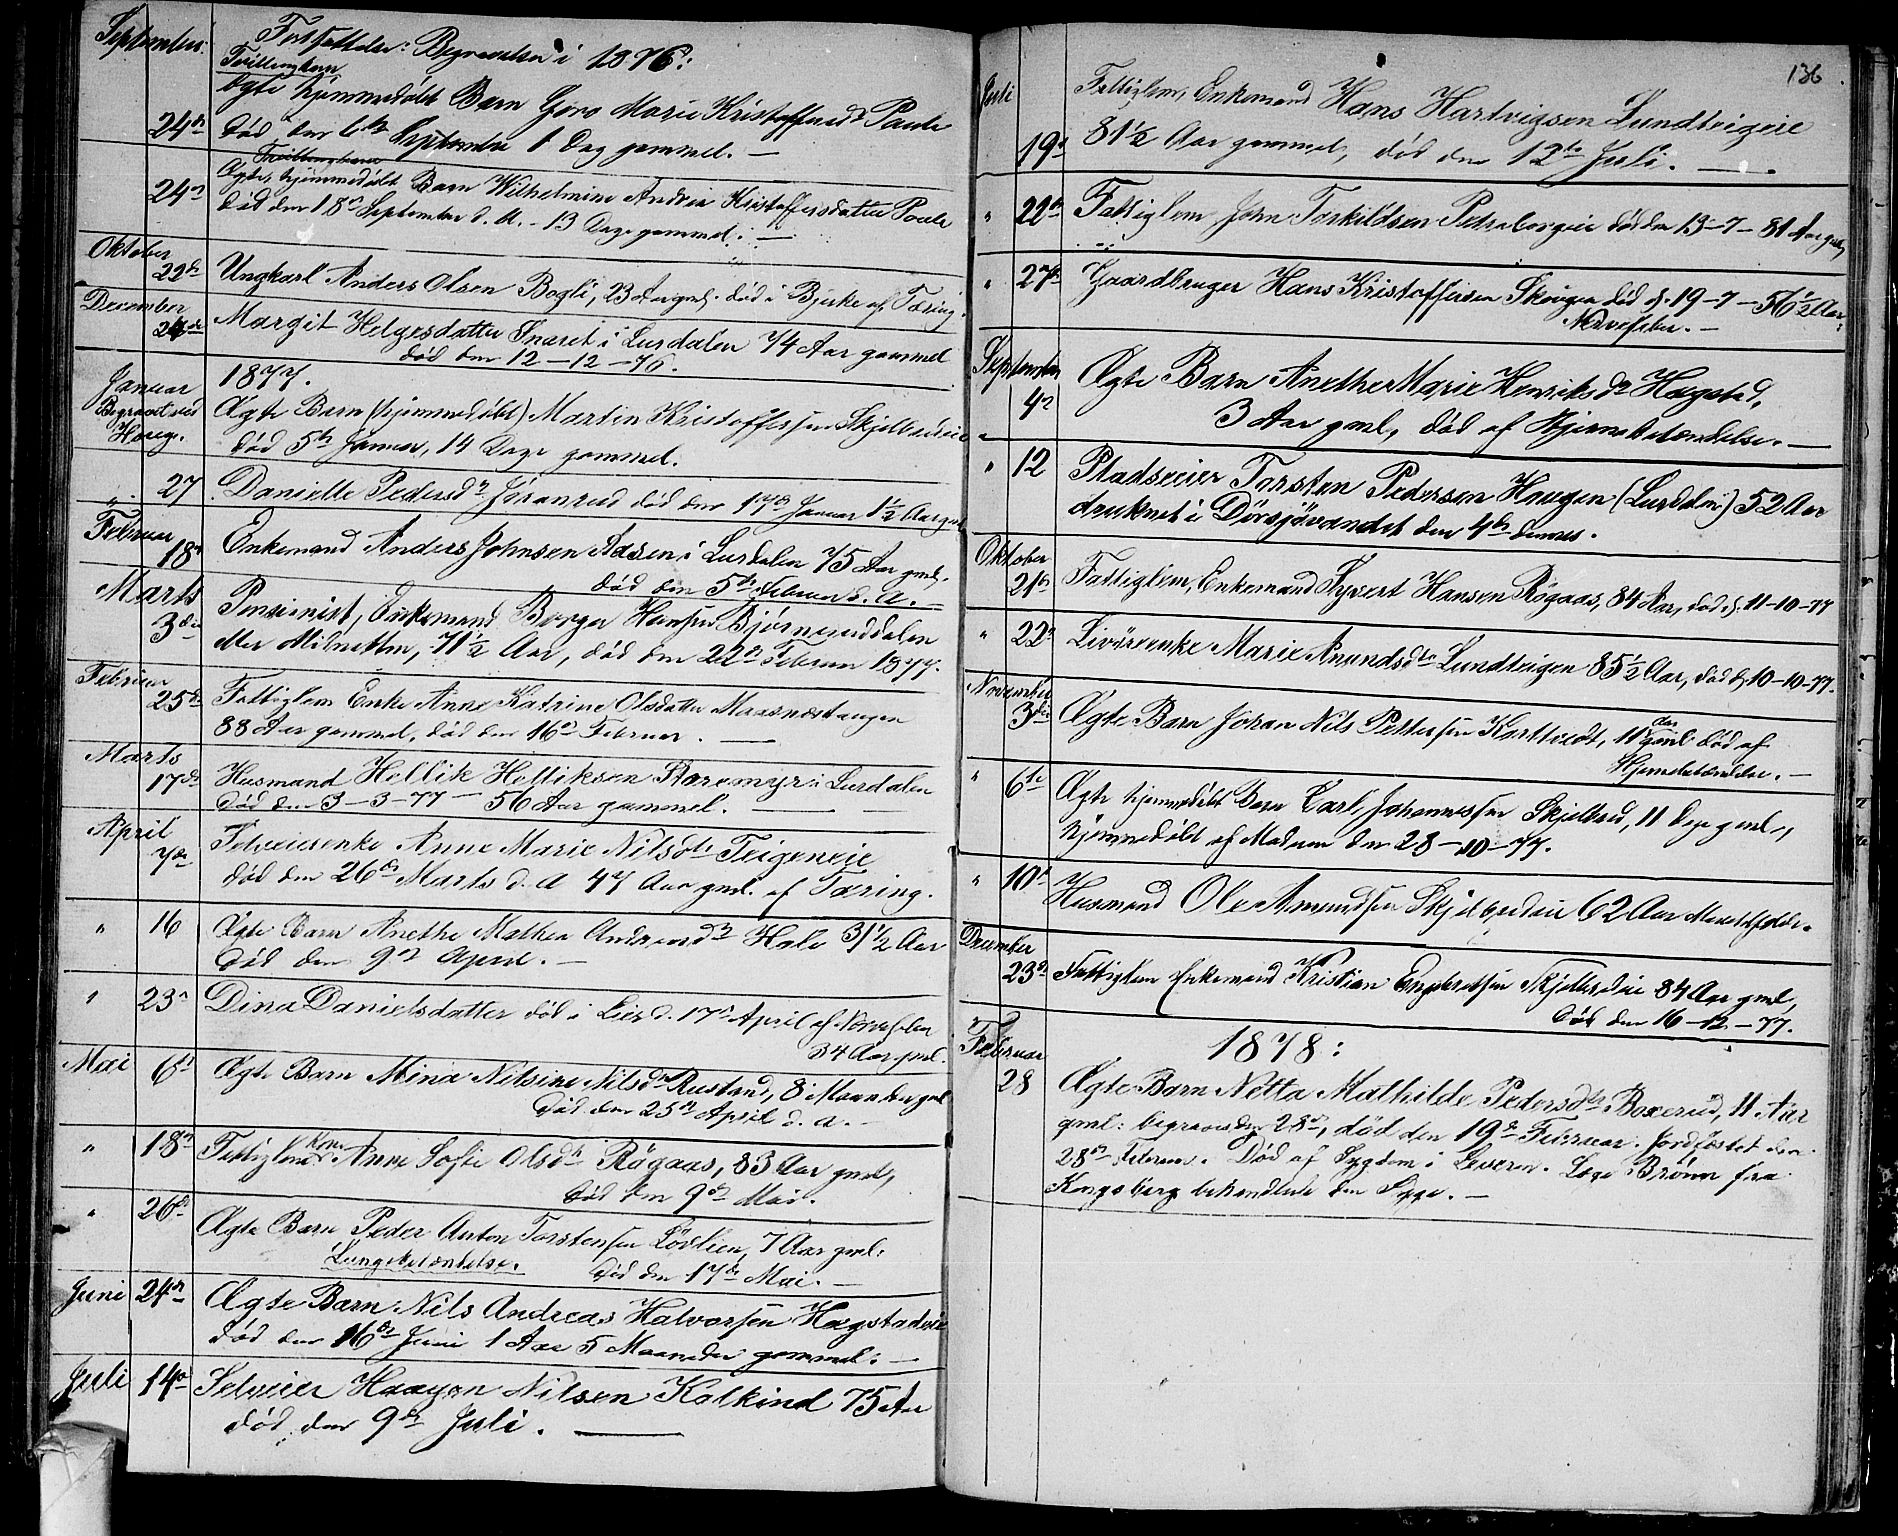 September. Fortsættelse: Begravelser i 1876:
Tvillingbarn
Ægte hjemmedøbt Barn Goro Marie Kristoffersdr Poule
24de død den 6te September 1 Dag gammel. —
Tvillingbarn
24de Ægte, hjemmedøbt Barn Wilhelmine Andrea Kristoffersdatter Poule
død den 18de September d. A. - 13 Dage gammel. —
Oktober
22de Ungkarl Anders Olsen Bogli, 23 Aar gml. død i Bjerke af Tæring.
December
24de Margit Helgesdatter Snaret i Lurdalen 74 Aar gammel
død den 12-12-76.
1877.
Januar
Begravet ved Ægte Barn (hjemmedøbt) Martin Kristoffersen Skjelbredeie
død 5te Januar, 14 Dage gammel.
" 27 Danielle Pedersdr Jøranrud død den 17de Januar 1½ Aar gml
Februar
18de Enkemand Anders Johnsen Aasen i Lurdalen 75 Aar gml.
død den 5te Februar d. A. —
Marts
3die Pensionist, Enkemand Borger Hansen Bjørnruddalen
71½ Aar, død den 22de Februar 1877.
Februar
25de Fattiglem Enke Anne Katrine Olsdatter Maasnæstangen
88 Aar gammel, død den 16de Februar. —
Marts
17de Husmand Hellik Helliksen Storemyr i Lurdalen
død den 3-3-77 - 56 Aar gammel. —
April
7de Selveierenke Anne Marie Nilsdtr Teigeneie
død den 26de Marts d. A 47 Aar gml. af Tæring.
" 16 Ægte Barn Anethe Mathea Andreasdr Hole 3½ Aar
død den 9de April. —
" 23de Dina Danielsdatter død i Lier d. 17de April af Nervefeber
34 Aar gml.
Mai 6te Ægte Barn Mina Nilsine Nilsdr Rustand, 8 Maaneder gml
død den 25de April d. A. —
" 18de Fattiglems Kone Anne Sofie Olsdr Rögaas, 83 Aar gml,
død den 9de Mai.
" 26de Ægte Barn Peder Anton Torstensen Lövlien, 7 Aar gml.
Lungebetændelse. død den 17de Mai. —
Juni 24de Ægte Barn Nils Andreas Halvorsen Hagstadeie
død den 16de Juni 1 Aar 5 Maaneder gammel. —
Juli 14de Selveier Haagen Nilsen Kolkind 75 Aar
død den 9de Juli. —
136
Juli Fattiglem, Enkemand Hans Hartvigsen Lundteigeie
19de 81½ Aar gammel, død den 12te Juli. —
" 22de Fattiglem John Torkildsen Petersborgeie død den 13-7- 81 Aar gml,
" 27de Gaardbruger Hans Kristoffersen Skougen død d. 19-7- 56½ Aar.
Nervefeber. —
September
4de Ægte Barn Anethe Marie Henriksdr Hagstad,
3 Aar gml, død af Hjernebetændelse. —
" 12 Pladseier Torsten Pedersen Haugen (Lurdalen) 52 Aar
druknet i Dörsjövandet den 4de dennes.
Oktober
21de Fattiglem, Enkemand Syvert Hansen Rögaas, 84 Aar, død d. 11-10-77
" 22de Livöreenke Marie Anundsdtr Lundteigen 85½ Aar, død d. 10-10-77.
November
3die Ægte Barn Johan Nils Pettersen Korttvedt, 11 Aar gml død af
Hjernebetændelse. —
" 6te Ægte hjemmedøbt Barn Carl Johannessen Skjelbred, 11 Dage gml,
hjemmedøbt af Madamen den 28-10-77.
" 10de Husmand Ole Amundsen Skjelbredeie 62 Aar
December
23de Fattiglem Enkemand Kristian Engebretsen Skjelbredeie 84 Aar gml,
død den 16-12-77.
Februar 1878:
28 Ægte Barn Netta Mathilde Pedersdtr Boxerud, 11 Aar
gml: begraves den 28de, død den 19de Februar. Jordfæstet den
28de Februar. Død af Sygdom i Leveren. Læge Brönn fra
Kongsberg behandlede den Syge. —